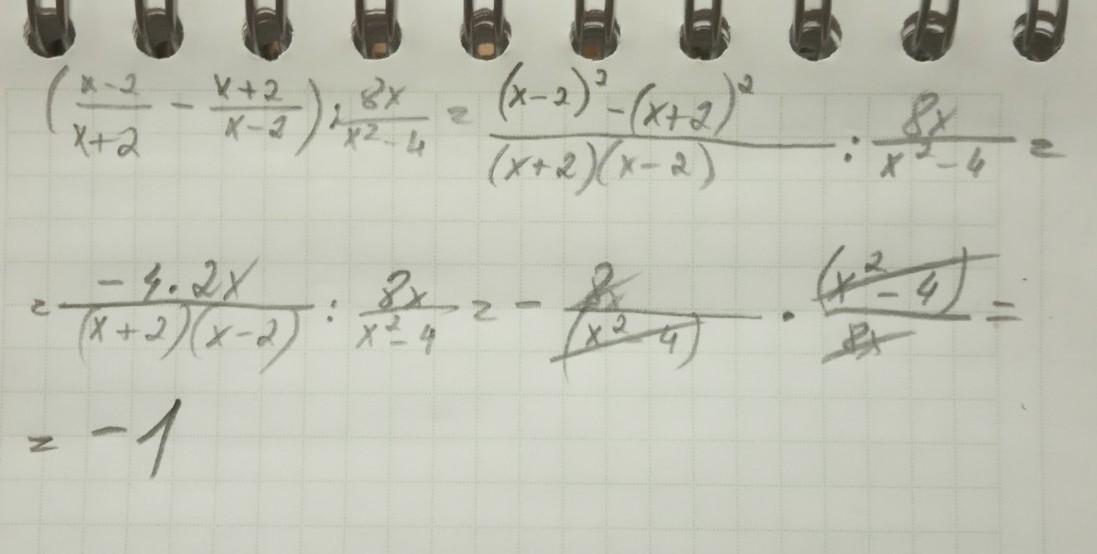 (x-2/x+2 - x+2/x-2) : 8x/x²-4 = (x-2)²-(x+2)²/(x+2)(x-2) : 8x/x²-4 =
= -4·2x/(x+2)(x-2) : 8x/x²-4 = - 8x/(x²-4) · (x²-4)/8x =
= -1